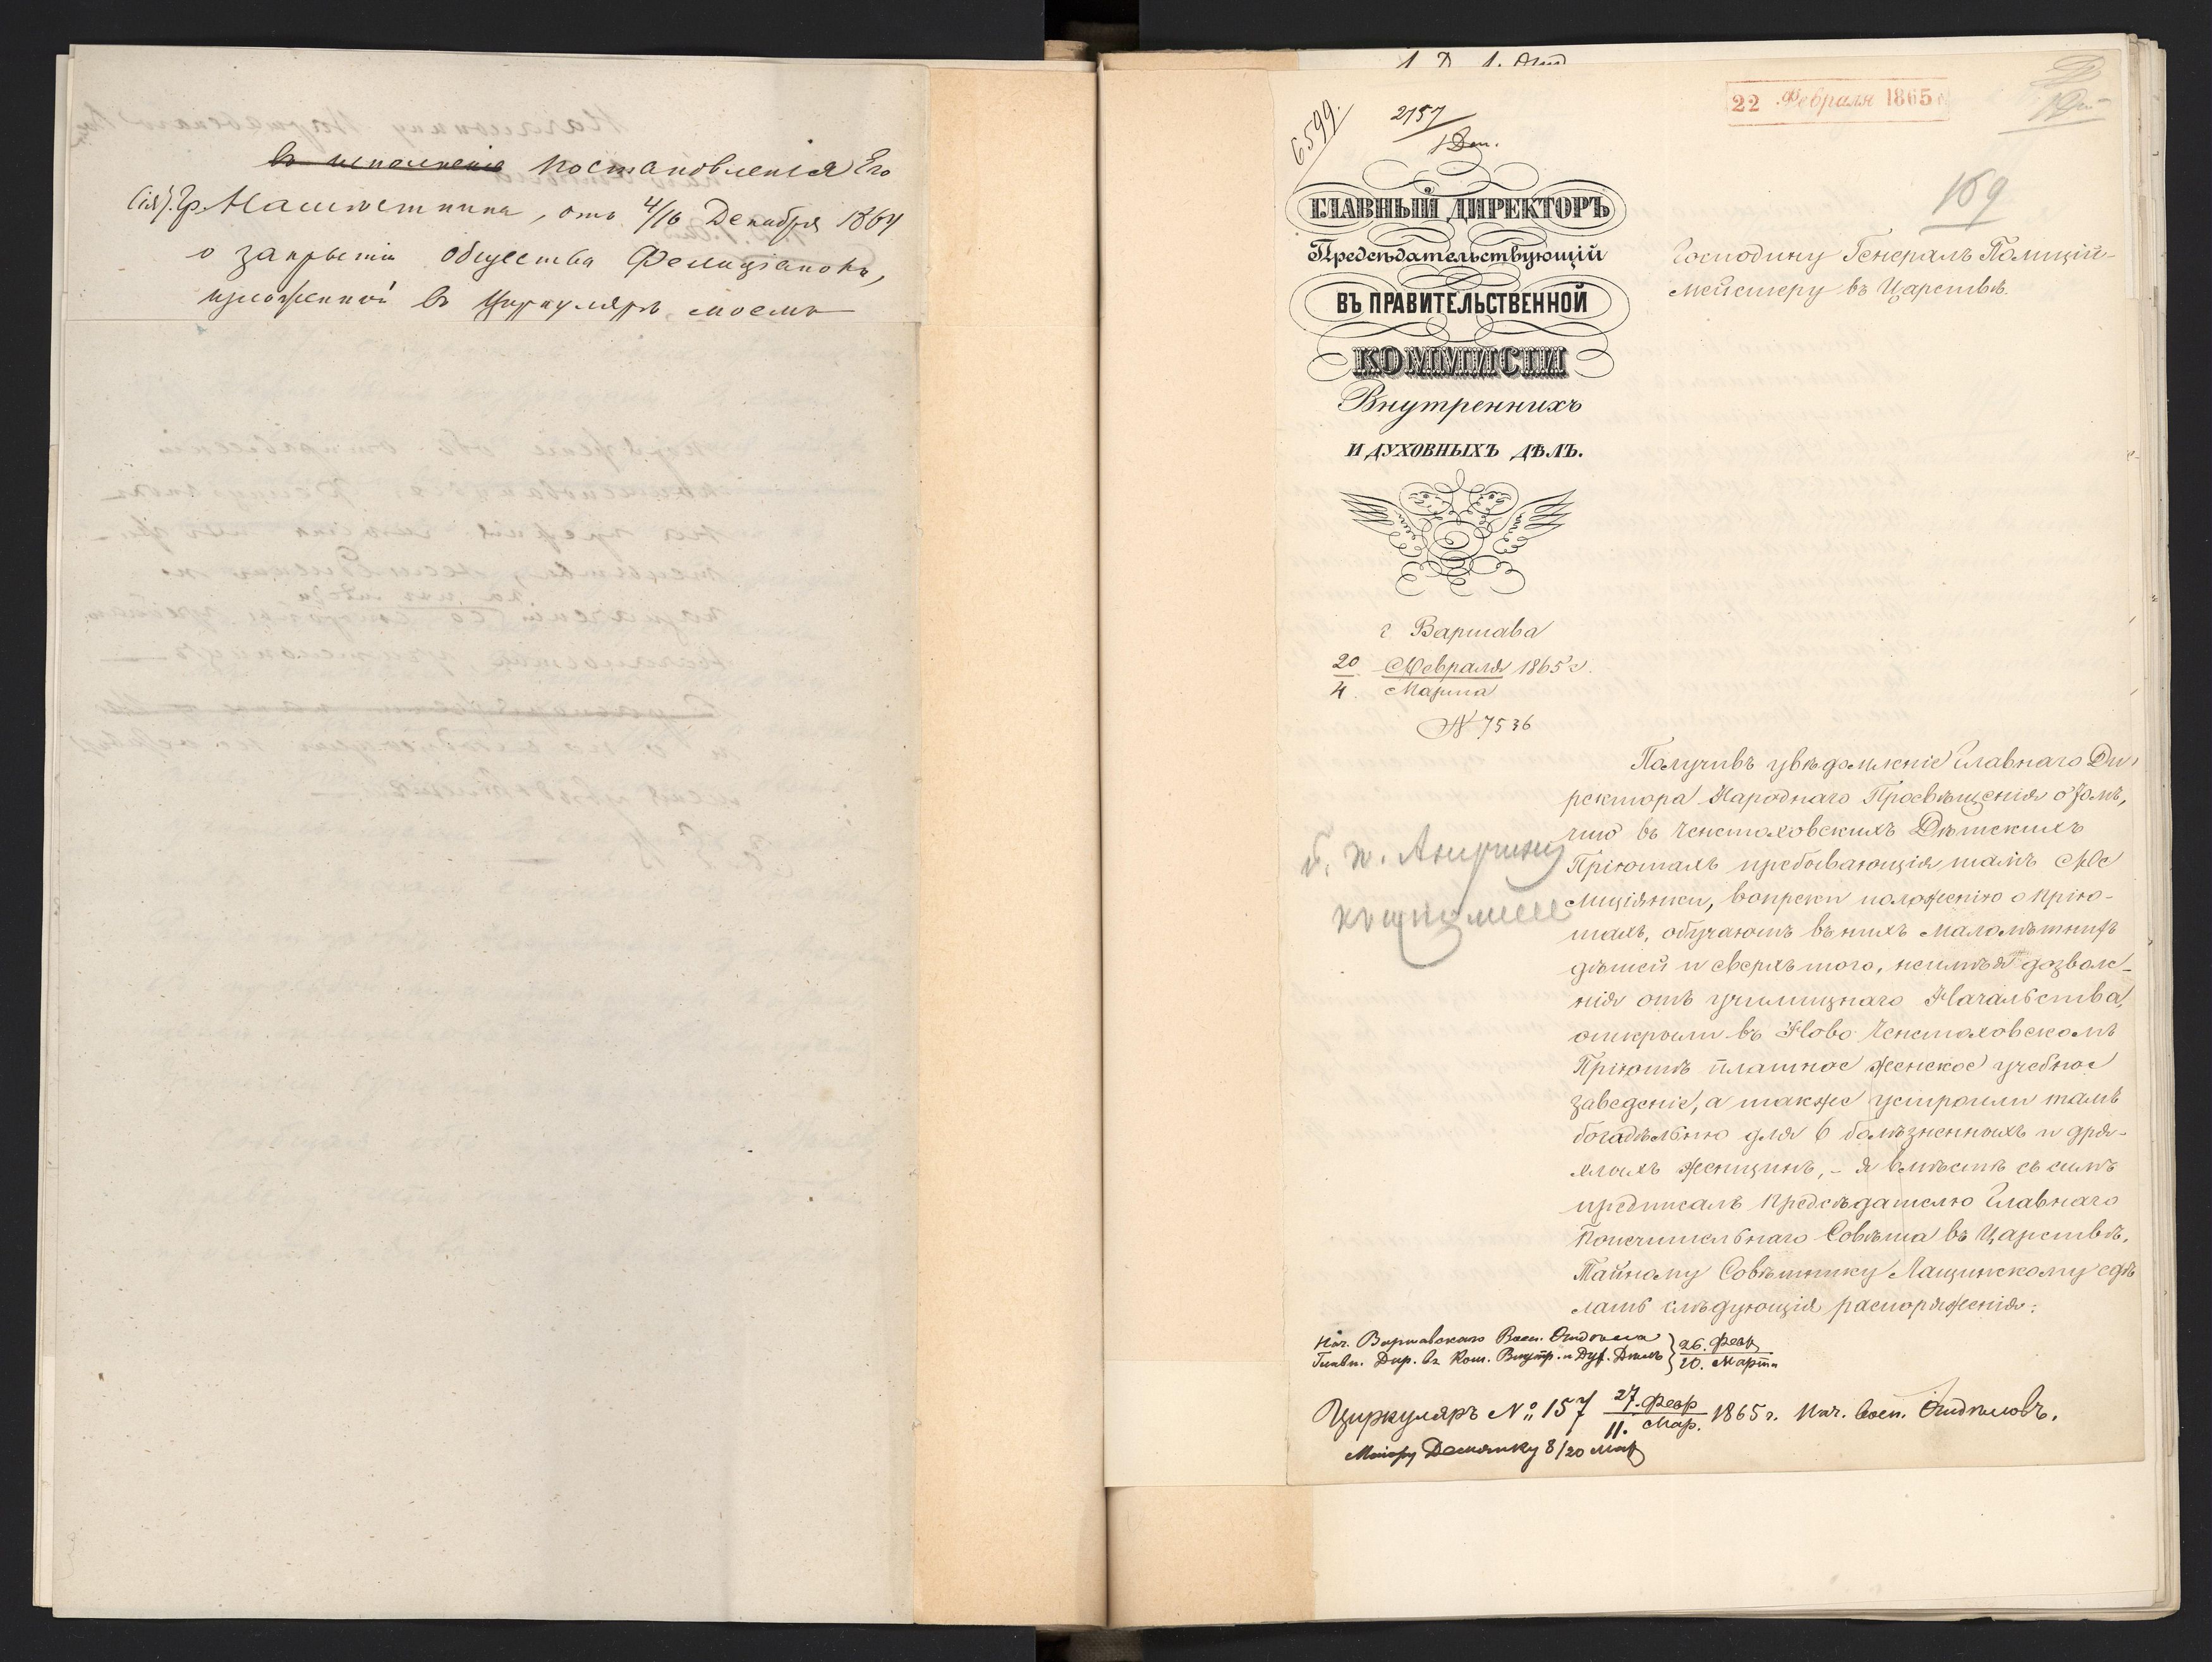 въ исполненіе постановленія Его
Сія). Гр. Намѣстника, отъ 4/16 Декабря 1864
о закрытіи общества Фелиціанокъ,
изложенной въ циркулярѣ моемъ
6599.
2157
1 Ден.
22 Февраля 1865
169
ГЛАВНЫЙ ДИРЕКТОРЪ
Предсѣдательствующій
ВЪ ПРАВИТЕЛЬСТВЕННОЙ
КОММИСІИ
Внутреннихъ
И ДУХОВНЫХЪ ДѢЛЪ.
Господину Генералъ Полицій-
мейстеру въ Царствѣ.
г Варшава
20 Февраля 1865 г.
4. Марта
N 7536
Получивъ увѣдомленіе Главнаго Ди-
ректора Народнаго Просвѣщенія о томъ,
что въ Ченстоховскихъ Дѣтскихъ
Пріютахъ пребывающія тамъ Фе
лиціянки, вопреки положенію о прію-
тахъ, обучаютъ въ нихъ малолѣтнихъ
дѣтей и сверхъ того, неимѣя дозволе-
нія отъ училищнаго Начальства,
открыли въ Ново Ченстоховскомъ
Пріютѣ платное женское учебное
заведеніе, а также устроили тамъ
богадѣльню для 6 болѣзненныхъ и дря-
хлыхъ женщинъ, - я вмѣстѣ съ симъ
предписалъ Предсѣдателю Главнаго
Попечительнаго Совѣта въ Царствѣ,
Тайному Совѣтнику Лащинскому сдѣ
лать слѣдующія распоряженія:
Нач. Варшавскаго Воен. Отдѣла } 26. Февр
Главн. Дир. въ Ком. Внутр. и Дух. Дѣлъ } 10. Марта
Циркуляръ № 157 27. Февр 11. Мар. 1865 г. Нач. Воен. Отдѣловъ.
Маіору 8/20 Мар